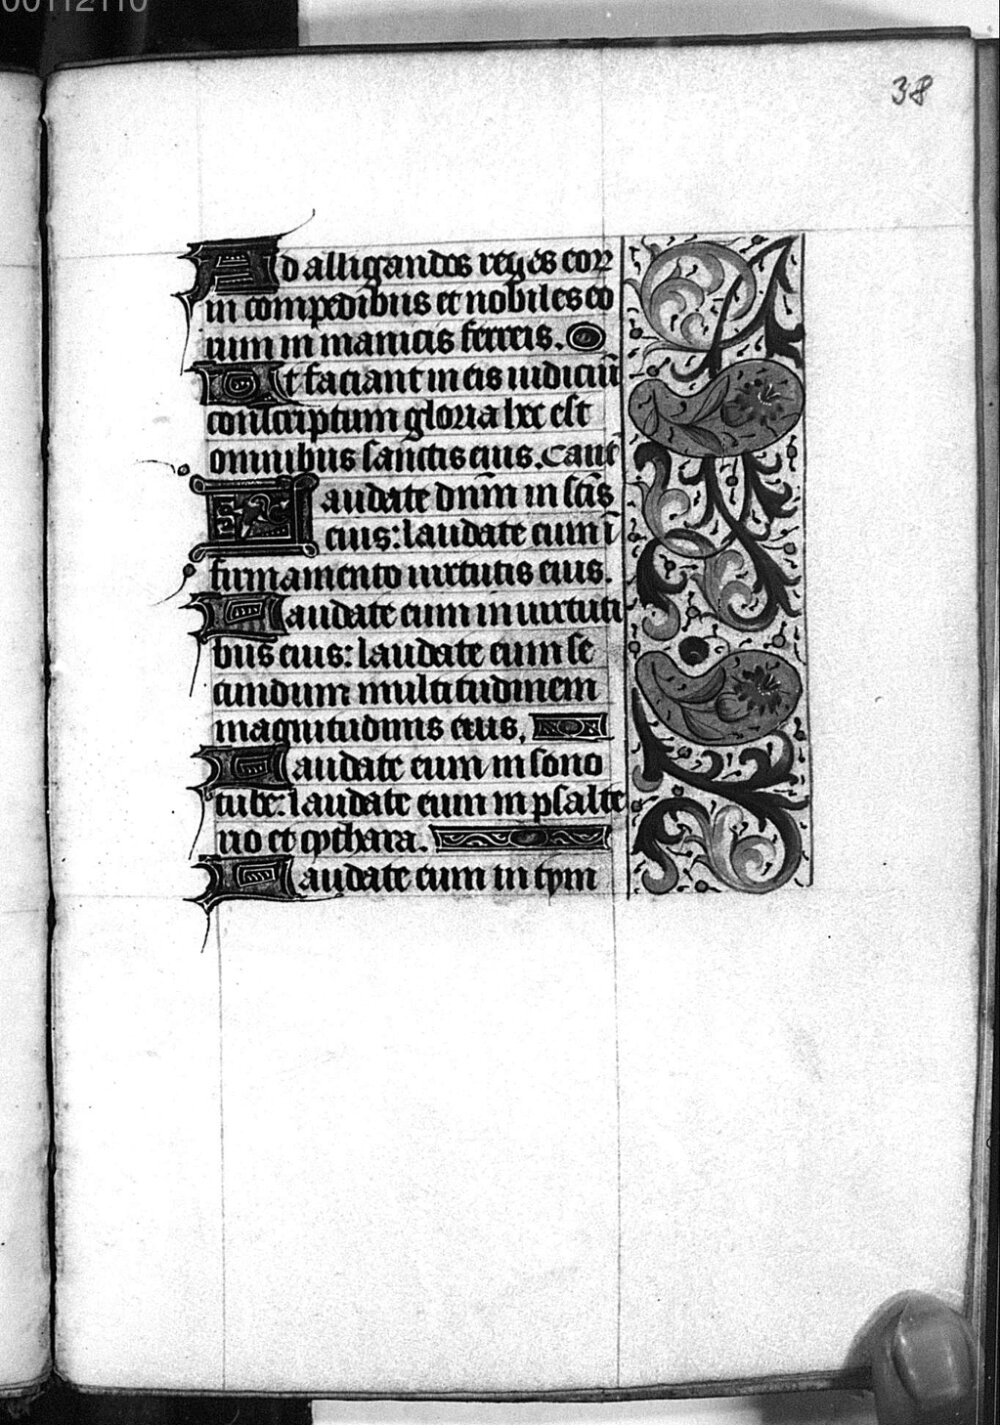 00112110
38
Ad alligandos reges eoꝝ
in compedibus et nobiles eo
rum in manicis ferreis.
Ut faciant in eis iudiciū
conscriptum gloria hec est
omnibus sanctis eius. Cant̄
Laudate dn̄m in sc̄is
eius: laudate eum ī
firmamento uirtutis eius.
Laudate eum in uirtuti
bus eius: laudate eum se
cundum multitudinem
magnitudinis eius.
Laudate eum in sono
tube: laudate eum in psalte
rio et cythara.
Laudate eum in tym